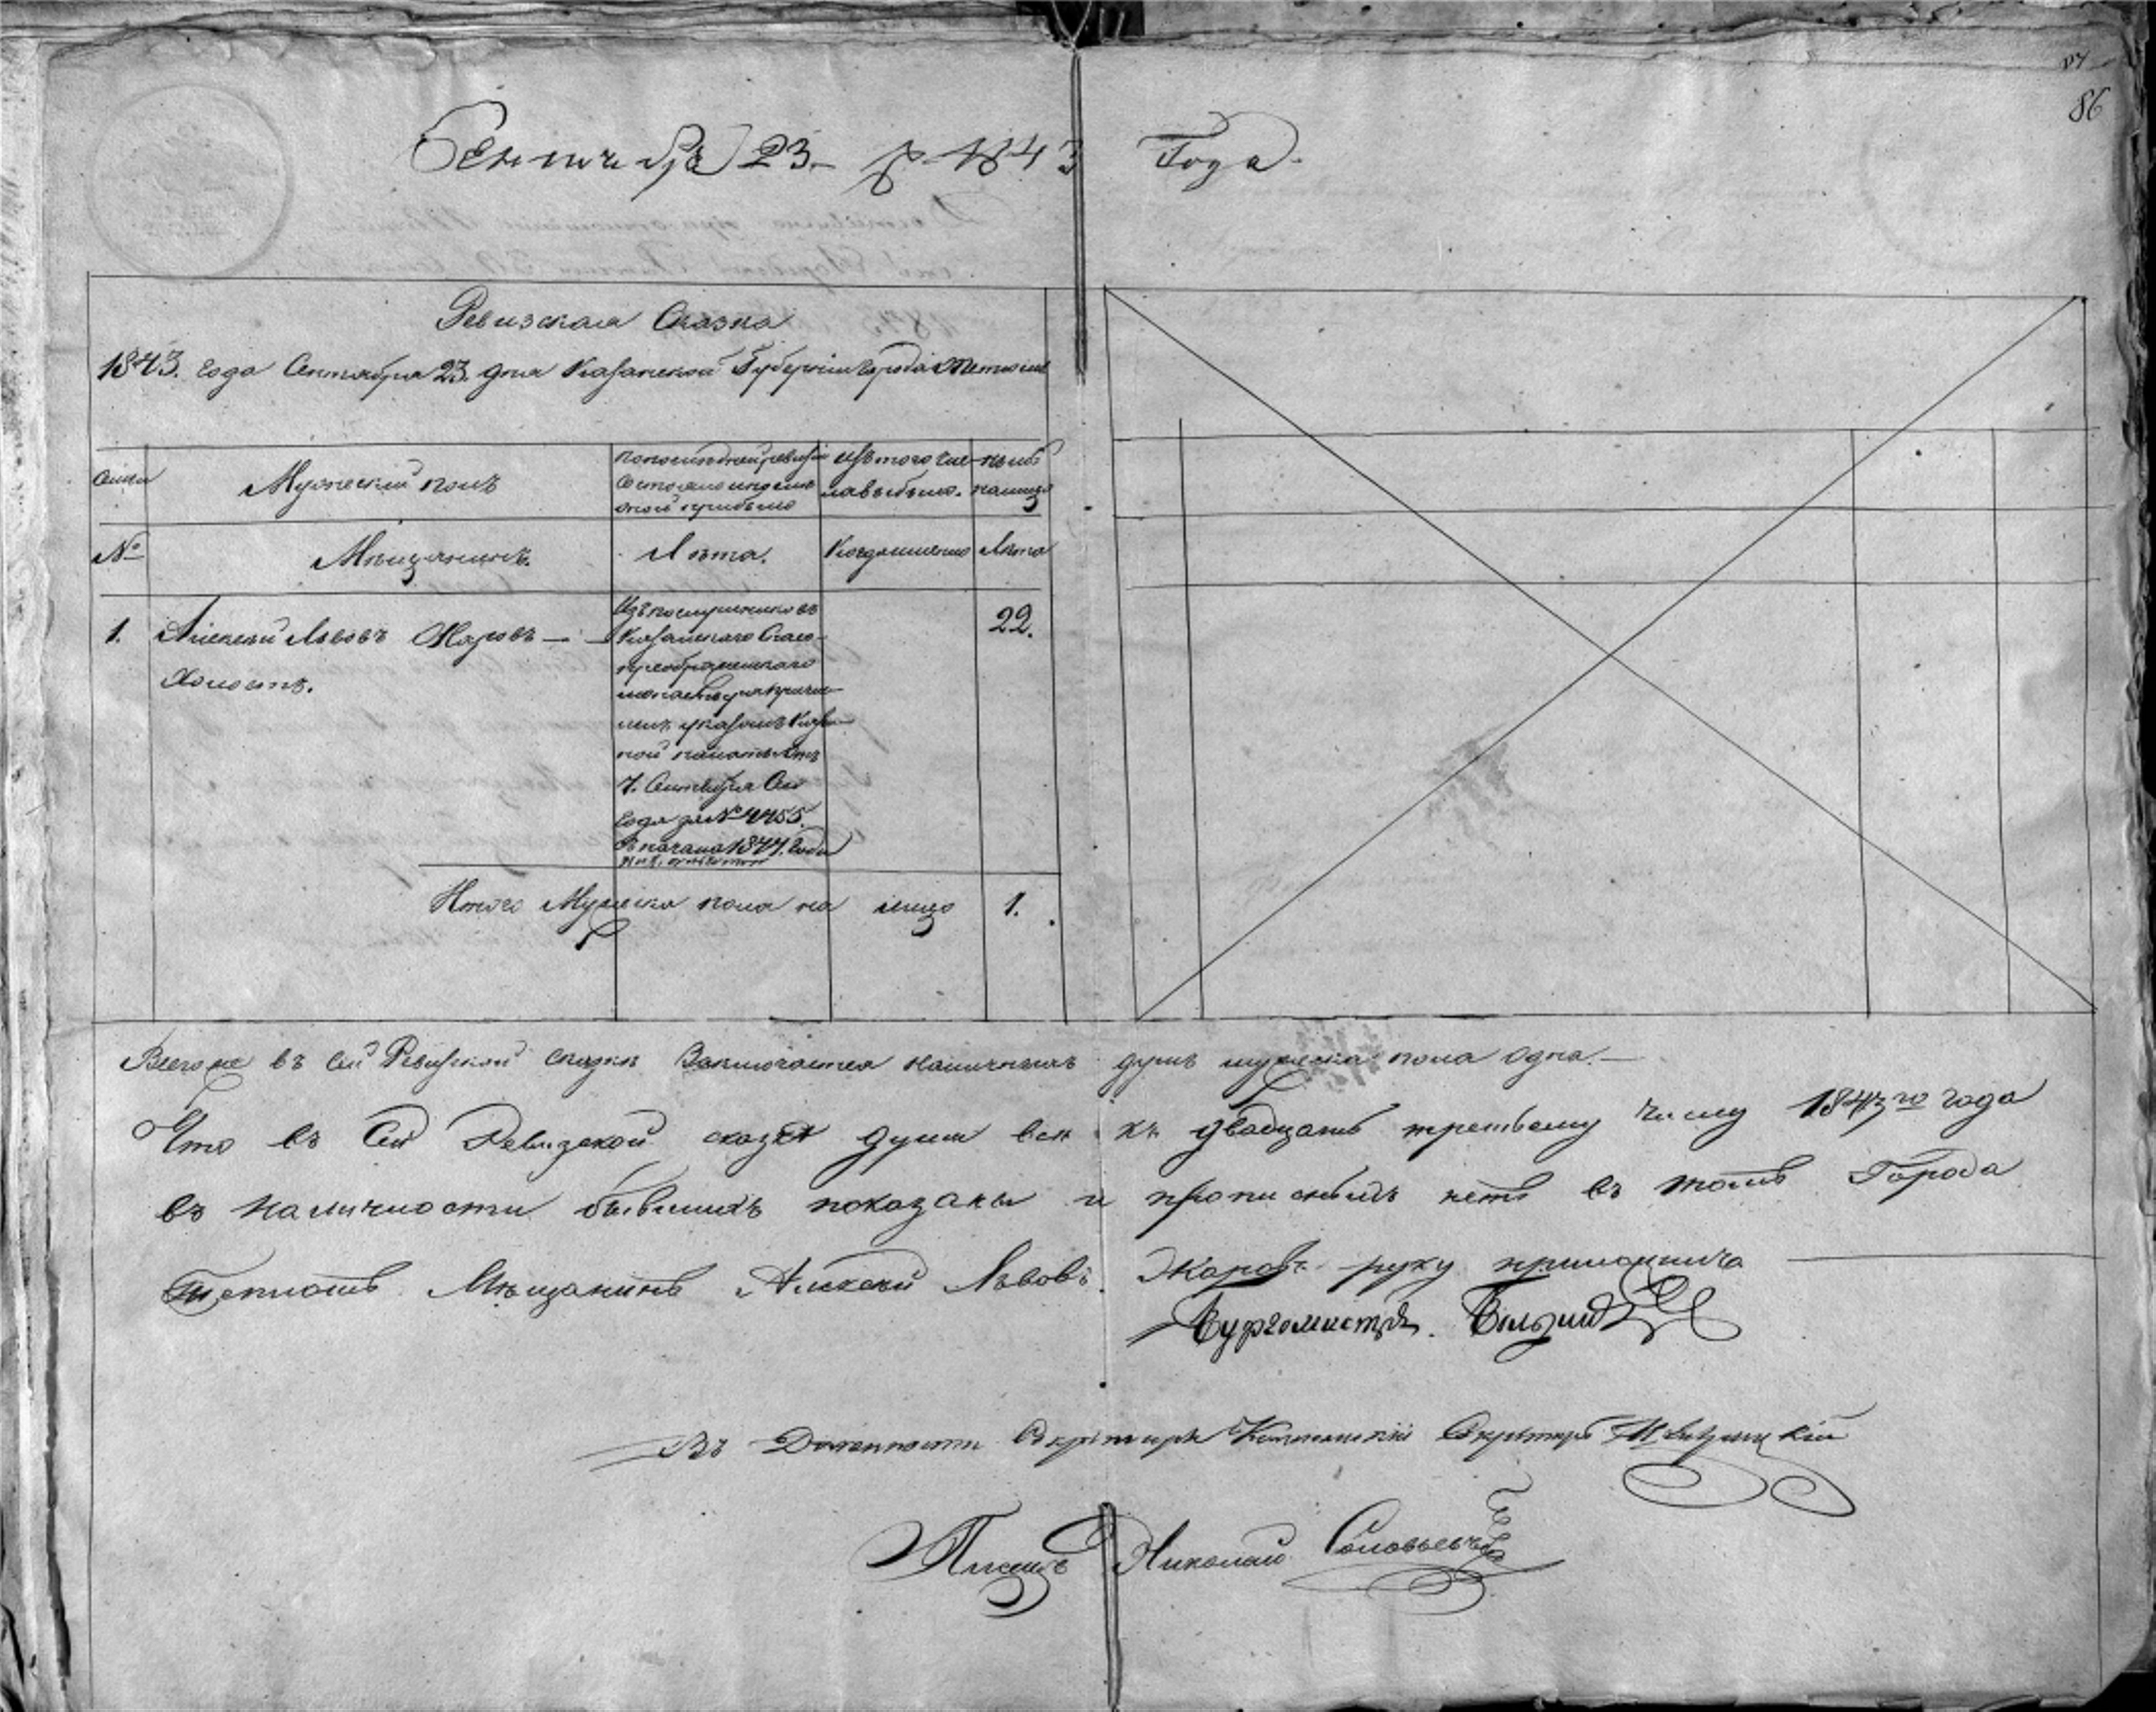 86
Сентября 23 1843 Года.
Ревизская Сказка
1843. года Сентября 23. дня Казанской Губернии города
Мужеский полъ
по последней ревизіи состояло и после оной прибыло
изъ того числа выбыло.
ныне на лицо
№
Мѣщанинъ.
Лѣта.
Когда именно
Лѣта
1.
Алексей Львовъ Жаровъ
Холостъ.
Изъ послушниковъ
Казанскаго Спасо-
преображенскаго
монастыря причис-
ленъ указомъ Казен-
ной палаты отъ
7. Сентября Сего
года за №
Съ начала 1844. года
22.
Итого Мужеска пола на лицо 1.
Всего же въ сей Ревизской сказке Заключается наличныхъ душъ мужеска пола одна.
Что въ Сей Ревизской сказке души все къ двадцать третьему числу 1843го года
въ наличности бывшихъ показаны и прописныхъ нетъ въ томъ Города
Мѣщанинъ Алексей Львовъ Жаровъ руку приложилъ
Бургомистръ.
Въ Должности Секретаря Секретарь
Писецъ Николай Соловьевъ